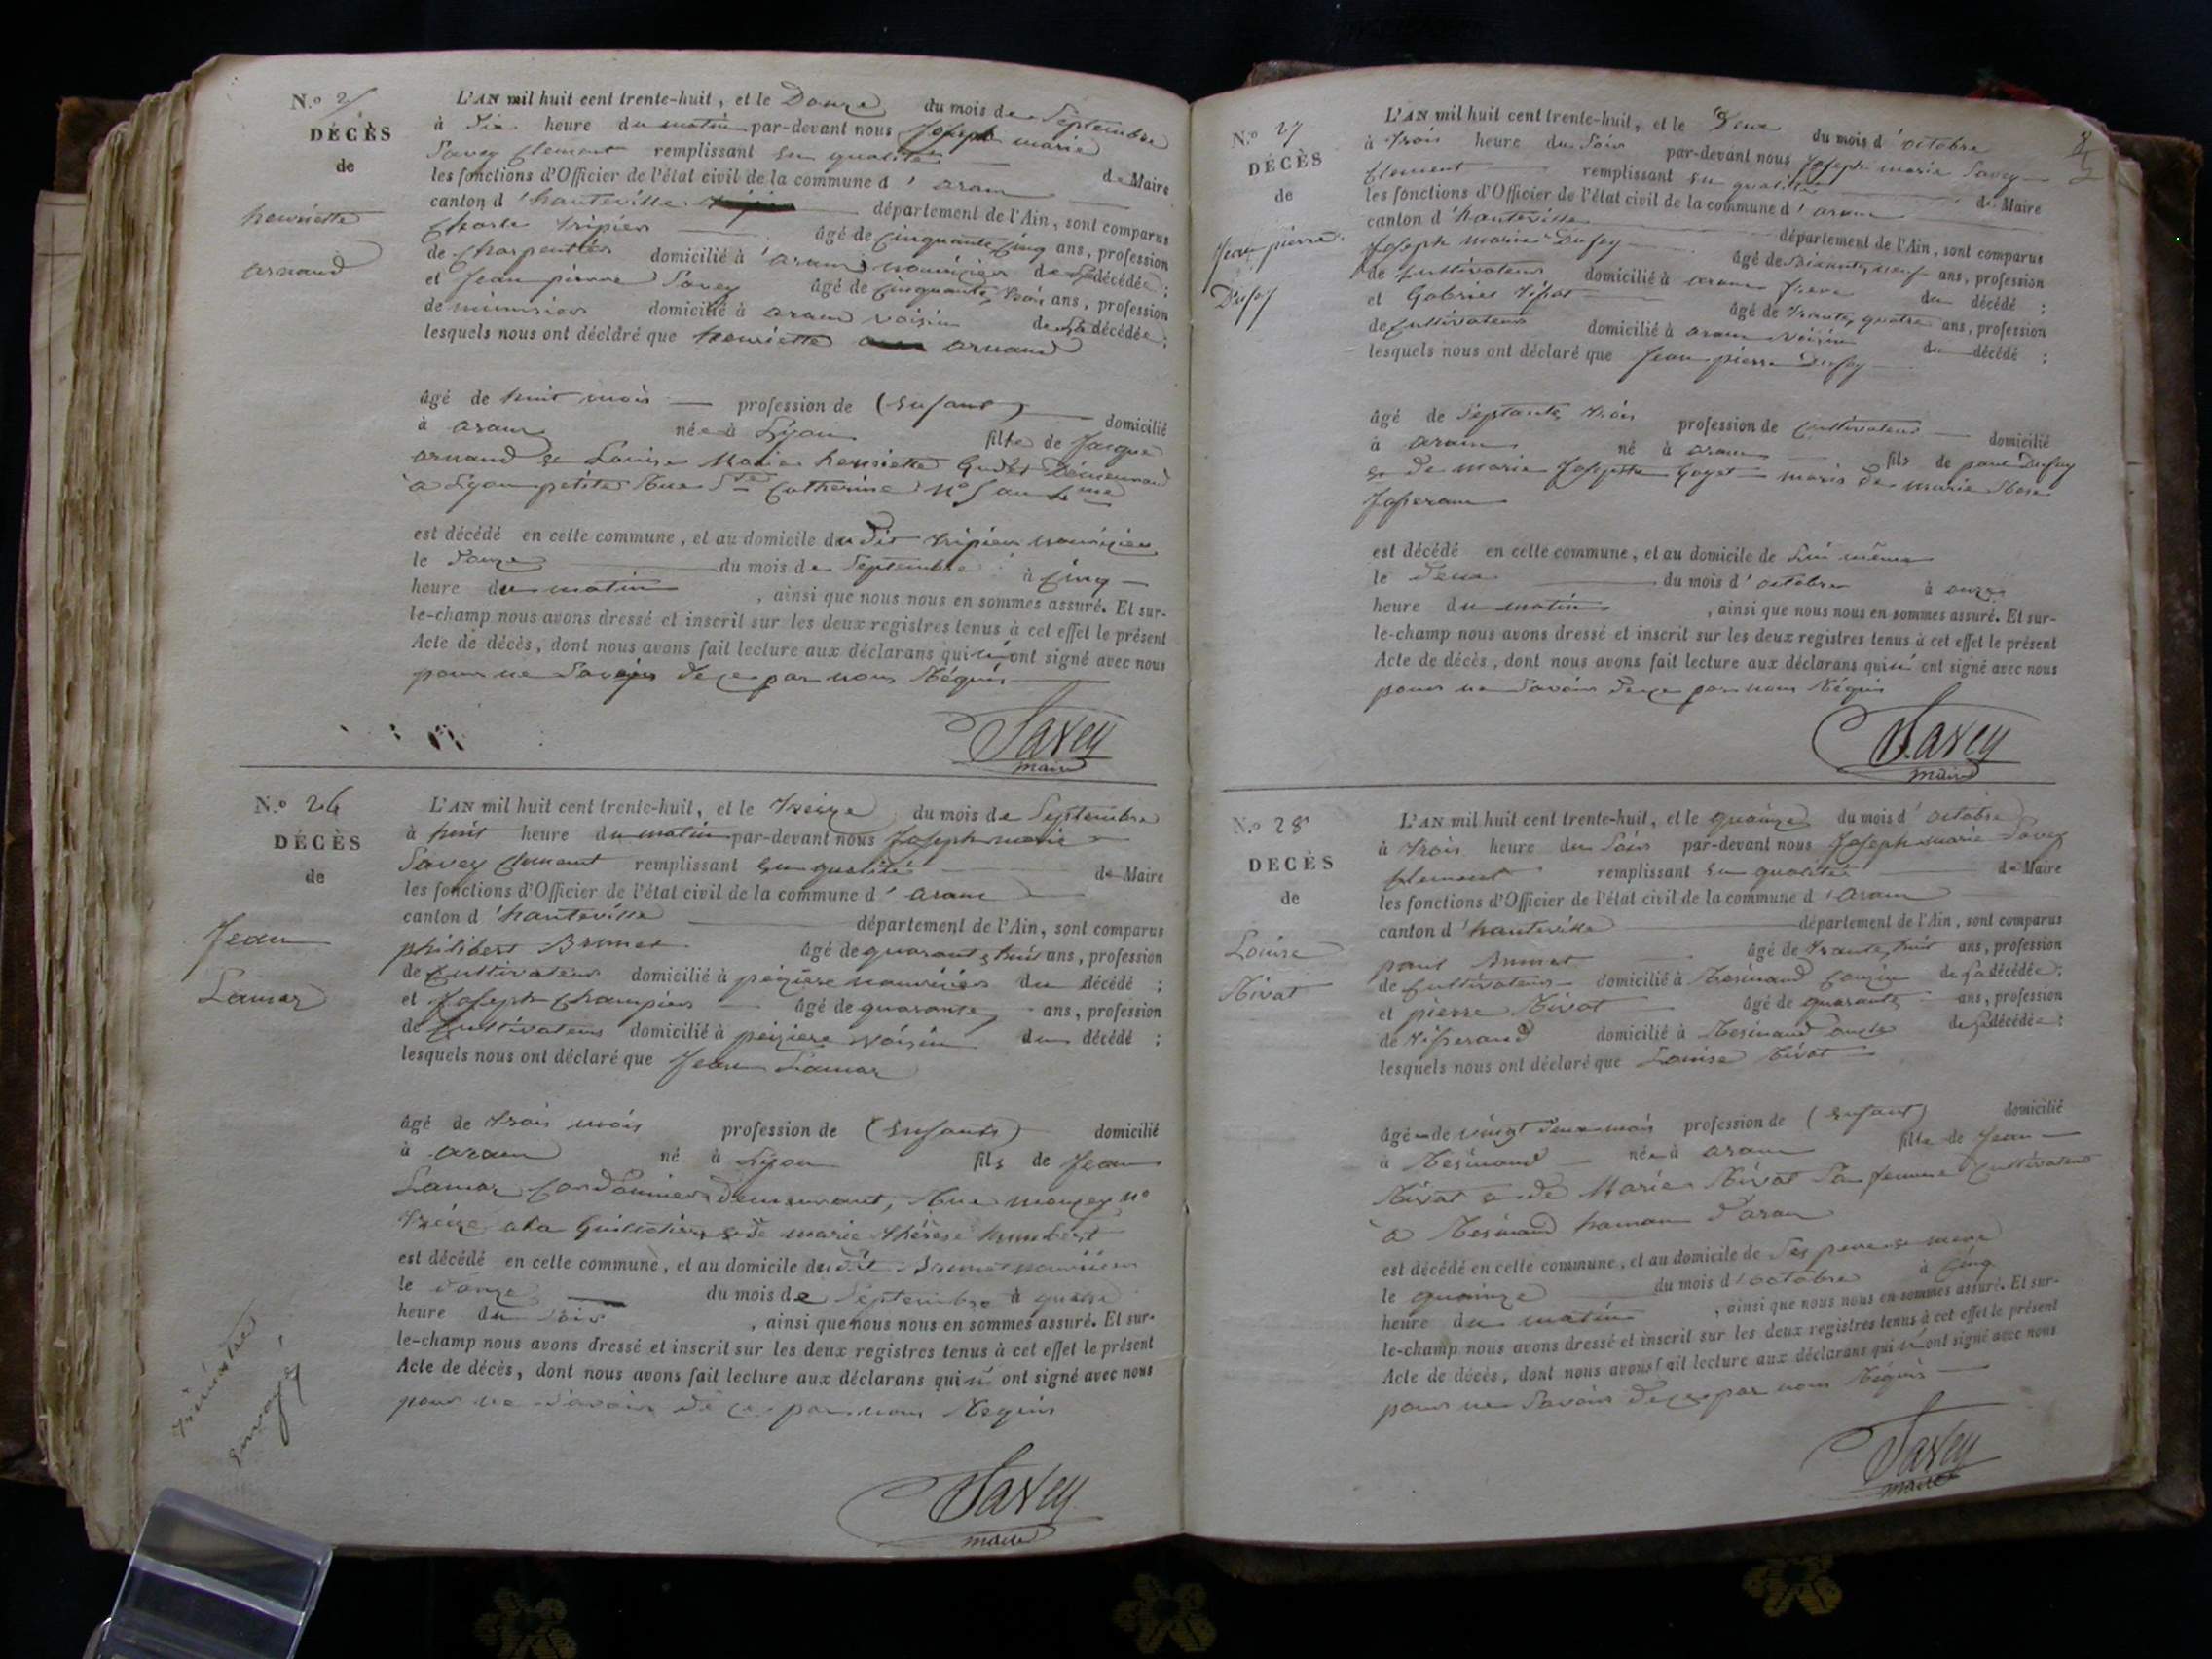 N.º 25
DÉCÈS
de
henriette
arnaud
L'AN mil huit cent trente-huit, et le Douze du mois de Septembre
à Dix heure du matin par-devant nous Joseph marie
Savey Clement remplissant en qualité de Maire
les fonctions d'Officier de l'état civil de la commune d' aranc
canton d'hauteville département de l'Ain, sont comparus
Charle tripier âgé de Cinquante Cinq ans, profession
de Charpentier domicilié à aranc nouricier de la décédée;
et Jean pierre Savey âgé de cinquante, trois ans, profession
de menusier domicilié à aranc voisin de la décédée;
lesquels nous ont déclaré que henriette arnaud
âgé de huit mois profession de (enfant) domicilié
à aranc née à Lyon fille de Jacque
arnaud et Louise Marie henriette Demeurand
à Lyon petite Rue Ste Catherine Nº
est décédé en cette commune, et au domicile du dit tripier nouricier
le Douze du mois de Septembre à Cinq
heure du matin, ainsi que nous nous en sommes assuré. Et sur-
le-champ nous avons dressé et inscrit sur les deux registres tenus à cet effet le présent
Acte de décès, dont nous avons fait lecture aux déclarans qui n'ont signé avec nous
pour ne Savoir de ce par nous Réquis
Savey
maire
N.º 26
DÉCÈS
de
Jean
Lamar
L'AN mil huit cent trente-huit, et le treize du mois de Septembre
à huit heure du matin par-devant nous Joseph marie
Savey Clement remplissant en qualité de Maire
les fonctions d'Officier de l'état civil de la commune d' aranc
canton d'hauteville département de l'Ain, sont comparus
philibert Brunet âgé de quarante, huit ans, profession
de Cultivateur domicilié à pézière nouricier du décédé;
et Joseph Champier âgé de quarante, ans, profession
de Cultivateur domicilié à pézière voisin du décédé;
lesquels nous ont déclaré que Jean Lamar
âgé de trois mois profession de (enfant) domicilié
à aranc né à Lyon fils de Jean
Lamar Cordonnier Demeurant, Rue nº
treize a la Guillotière et de marie thérèse humbert
est décédé en cette commune, et au domicile du dit Brunet nouricier
le Douze du mois de Septembre à quatre
heure du Soir, ainsi que nous nous en sommes assuré. Et sur-
le-champ nous avons dressé et inscrit sur les deux registres tenus à cet effet le présent
Acte de décès, dont nous avons fait lecture aux déclarans qui n'ont signé avec nous
pour ne Savoir de ce par nous Requis
envoyé
Savey
maire
N.º 27
DÉCÈS
de
Jean pierre
Dufey
L'AN mil huit cent trente-huit, et le Deux du mois d'octobre
à trois heure du Soir par-devant nous Joseph marie Savey
Clement remplissant en qualité de Maire
les fonctions d'Officier de l'état civil de la commune d' aranc
canton d'hauteville département de l'Ain, sont comparus
Joseph marie Dufey âgé de Soixante, neuf ans, profession
de Cultivateur domicilié à aranc frere du décédé;
et Gabriel âgé de trente, quatre ans, profession
de Cultivateur domicilié à aranc voisin du décédé;
lesquels nous ont déclaré que Jean pierre Dufey
âgé de Septante, trois profession de Cultivateur domicilié
à aranc né à aranc fils de paul Dufey
et de marie Josephte Goyet maris de marie Rose
Josserant
est décédé en cette commune, et au domicile de Lui même
le Deux du mois d'octobre à onze
heure du matin, ainsi que nous nous en sommes assuré. Et sur-
le-champ nous avons dressé et inscrit sur les deux registres tenus à cet effet le présent
Acte de décès, dont nous avons fait lecture aux déclarans qui n'ont signé avec nous
pour ne Savoir de ce par nous Réquis
Savey
maire
N.º 28
DECÈS
de
Louise
Rivat
L'AN mil huit cent trente-huit, et le quainze du mois d'octobre
à trois heure du Soir par-devant nous Joseph marie Savey
Clement remplissant en qualité de Maire
les fonctions d'Officier de l'état civil de la commune d'aranc
canton d'hauteville département de l'Ain, sont comparus
paul Brunet âgé de trante, huit ans, profession
de Cultivateur domicilié à Résinand Cousin de la décédée;
et pierre Rivat âgé de quarante ans, profession
de tisserand domicilié à Résinand oncle de la décédée;
lesquels nous ont déclaré que Louise Rivat
âgée de vingt Deux mois profession de (enfant) domicilié
à Résinand née à aranc fille de Jean
Rivat et de Marie Rivat Sa femme Cultivateur
à Résinand hameau D'aranc
est décédé en cette commune, et au domicile de Ses pere et mere
le quainze du mois d'octobre à Cinq
heure du matin, ainsi que nous nous en sommes assuré. Et sur-
le-champ nous avons dressé et inscrit sur les deux registres tenus à cet effet le présent
Acte de décès, dont nous avons fait lecture aux déclarans qui n'ont signé avec nous
pour ne Savoir de ce par nous Réquis
Savey
maire